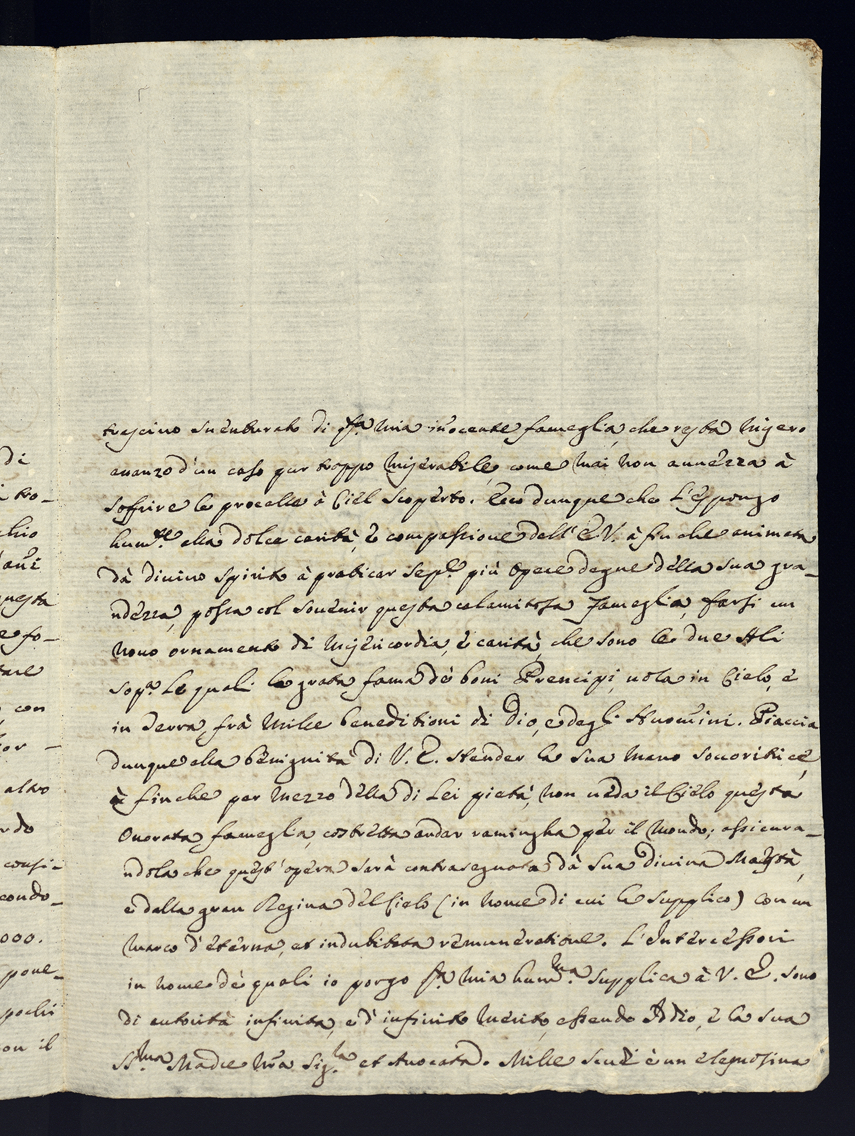 di
chio
questa
con
altro
consi-
condo-
000.
pochi
con il
suenturato di q.ta mia inocente fameglia, che resta misero
auanzo d'un caso pur troppo miserabile, come mai non auuezza à
soffrire le procelle à Ciel scoperto. Ecco dunque che L'espongo
hum.te alla dolce carità, è compassione dell'E.V. à fin che animata
dà diuino spirito à praticar sep.e più opere degne della sua gra-
ndezza, possa col souenir questa calamitosa fameglia, farsi un
nouo ornamento di misericordia, è carità, che sono le due Ali
sop.a Le quali la grata fama dè boni Prencipi, uola in Cielo, è
in Terra, frà mille beneditioni di Dio, è degli Huomini. Piaccia
dunque alla benignità di V. E. stender la sua mano socoritrice,
à finche per mezzo della di Lei pietà, non ueda il Cielo questa
Onorata fameglia, costretta andar raminga per il mondo; assicura-
ndola che quest'opera sarà contrasegnata dà Sua Diuina Maestà,
è dalla gran Regina del Cielo (in nome di cui la supplico) con un
marco d'eterna, et indubitata remuneratione. L'Intercessori
in nome dè quali io porgo q.ta mia hum.ma supplica à V. E. sono
di autorità infinita, è d'infinito merito, essendo Iddio, è la sua
SS.ma Madre N'ra Sig.ra et Auocata. Mille scudi è un elemosina